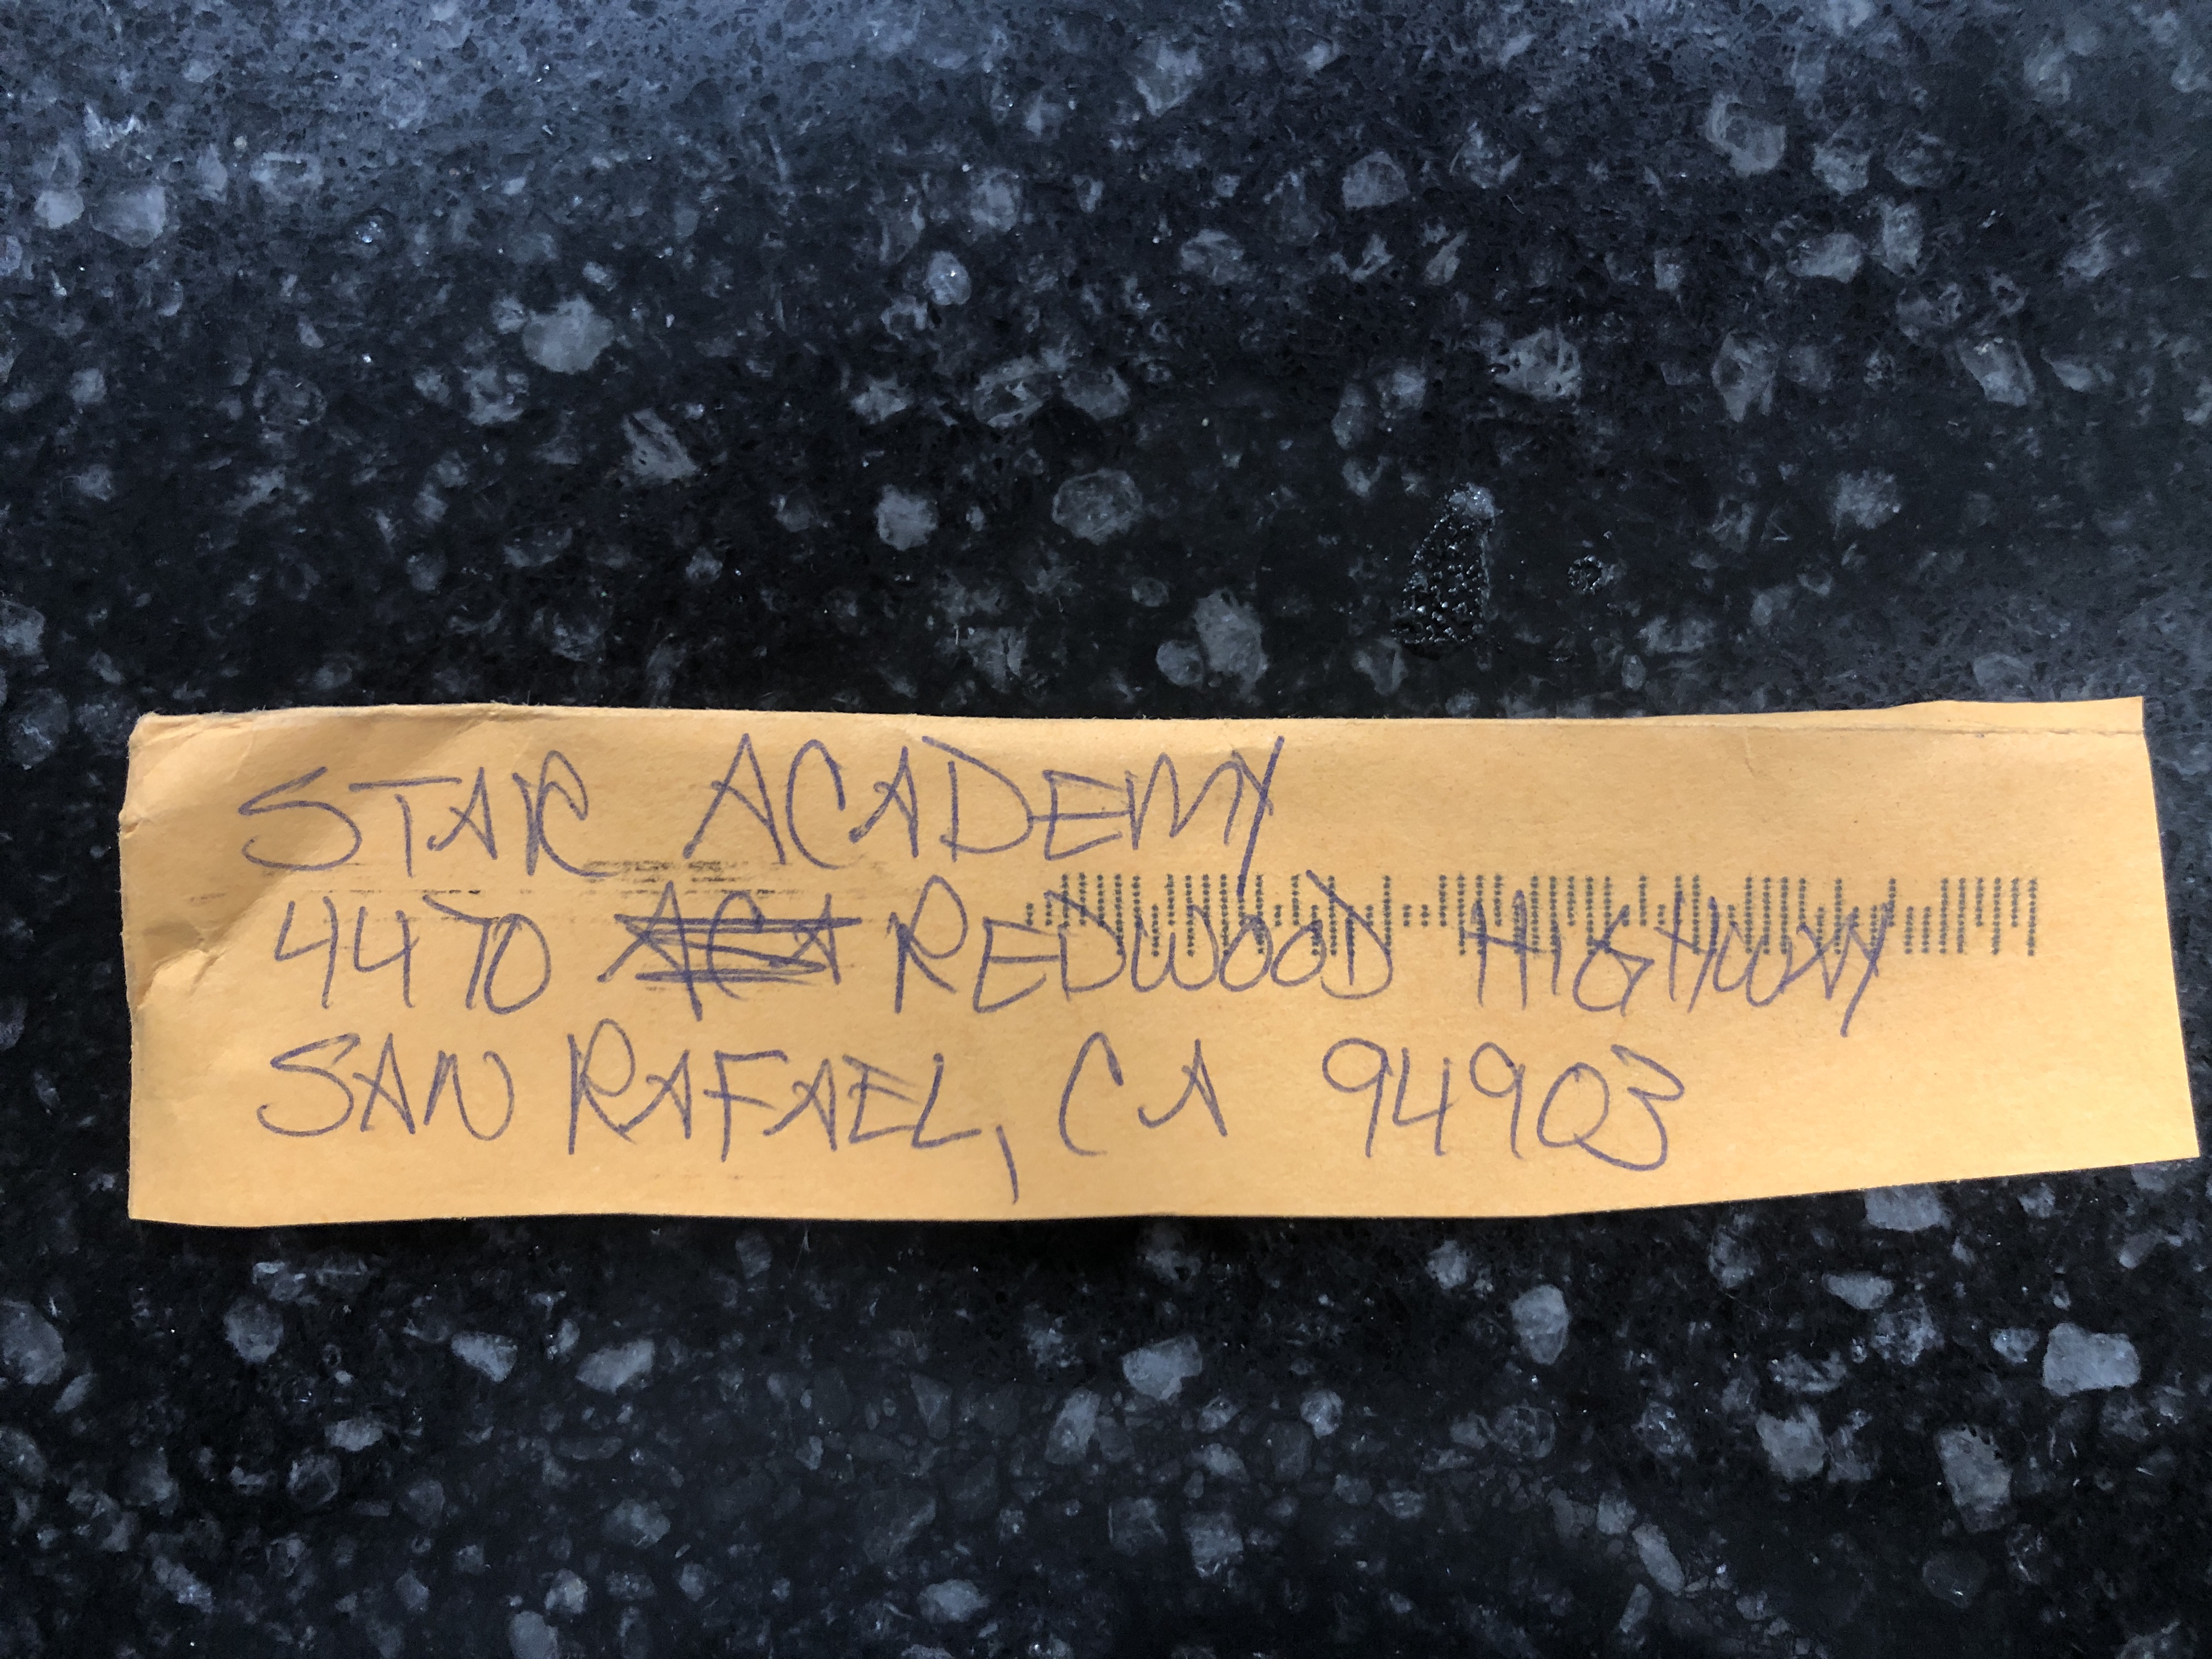 STAR ACADEMY
4470 REDWOOD HIGHWAY
SAN RAFAEL, CA 94903